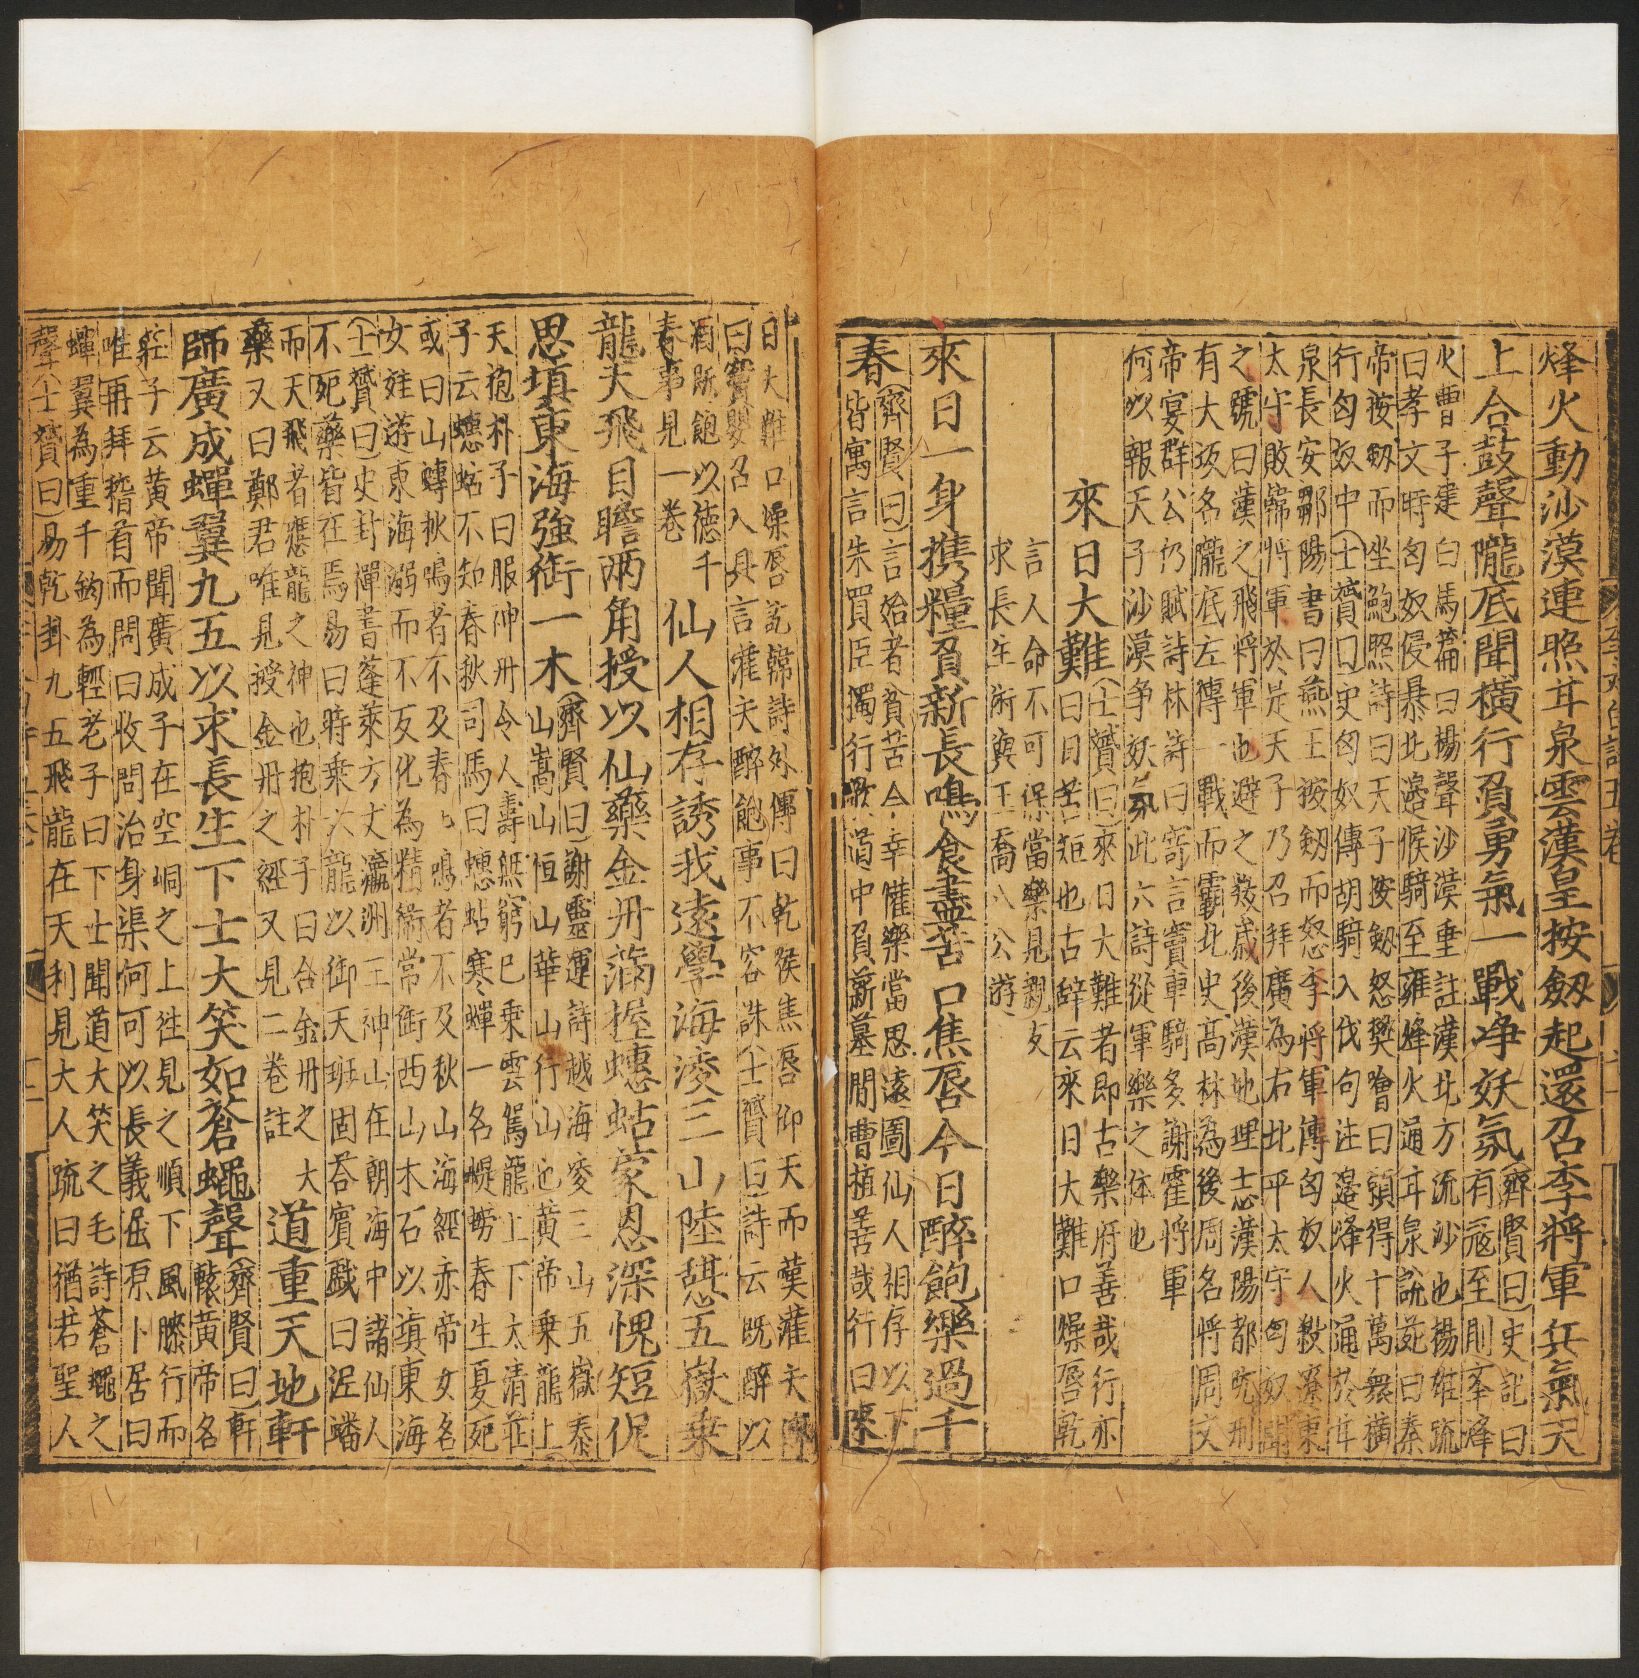 烽火動沙漠連照甘泉雲漢皇按劔起還召李將軍兵氣天
上合鼓聲隴底聞橫行負勇氣一戰净妖氛
齊賢曰史記曰
有冦至則舉烽
火曹子建白馬篇曰揚聲沙漠垂註漢北方流沙也揚雄疏
曰孝文時匈奴侵暴北邊候騎至雍烽火通甘泉說苑曰秦
帝按劔而坐鮑照詩曰天子按劔怒樊噲曰願得十萬衆橫
行匈奴中士贇曰史匈奴傳胡騎入代句注邊烽火通於甘
泉長安鄒陽書曰燕王按劔而怒李將軍傳匈奴人殺遼東
太守敗韓將軍於是天子乃召拜廣為右北平太守匈奴聞
之號曰漢之飛將軍也避之數歲後漢地理志漢陽郡阮
有大坂名隴底左傳一戰而霸北史高林為後周名將周文
帝宴群公仍賦詩林詩曰寄言竇車騎多謝霍將軍
何以報天子沙漠争妖氛此六詩從軍樂之体也
來日大難
士贇曰來日大難者即古樂府善哉行亦
曰日苦短也古辞云來日大難口燥唇乾
言人命不可保當樂見親友
求長生術與王喬八公游
來日一身携糧負新長鳴食盡苦口焦唇今日醉飽樂過千
春
齊賢曰言始者貧苦今幸懽樂當思遠圖仙人相存以下
皆寓言朱買臣獨行歌道中負薪墓間曹植善哉行曰來
日大難口燥唇乾韓詩外傳曰乾喉焦唇仰天而嘆灌夫傳
曰竇嬰召入具言灌夫醉飽事不容誅士贇曰詩云既醉以
酒既飽以德千
春事見一卷
仙人相存誘我遠學海淩三山陸憩五嶽乗
龍天飛目瞻兩角授以仙藥金丹滿握蟪蛄蒙恩深愧短促
思塡東海強銜一木
齊賢曰謝靈運詩越海凌三山五嶽泰
山嵩山恒山華山行山也黄帝乗龍上
天抱朴子曰服神丹令人壽無窮已乗雲駕龍上下太清莊
子云蟪蛄不知春秋司馬曰蟪蛄寒蟬一名蝭蟧春生夏死
或曰山蟪秋鳴者不及春春鳴者不及秋山海經赤帝女名
女娃游東海溺而不反化為精衛常銜西山木石以塡東海
士贇曰史封禪書蓬萊方丈瀛洲三神山在朝海中諸仙人
不死藥皆在焉易曰時乗六龍以御天班固荅賓戲曰泥蟠
而天飛者應龍之神也抱朴子曰合金丹之大
藥又曰鄭君唯見授金丹之經又見二卷註
道重天地軒
師廣成蟬翼九五以求長生下士大笑如蒼蠅聲
齊賢曰軒
轅黄帝名
莊子云黄帝聞廣成子在空峒之上徃見之順下風膝行而
唯再拜稽首而問曰收問治身渠何可以長義屈原卜居曰
蟬翼為重千鈞為輕老子曰下士聞道大笑之毛詩蒼蠅之
聲士贇曰易乾卦九五飛龍在天利見大人疏曰猶若聖人